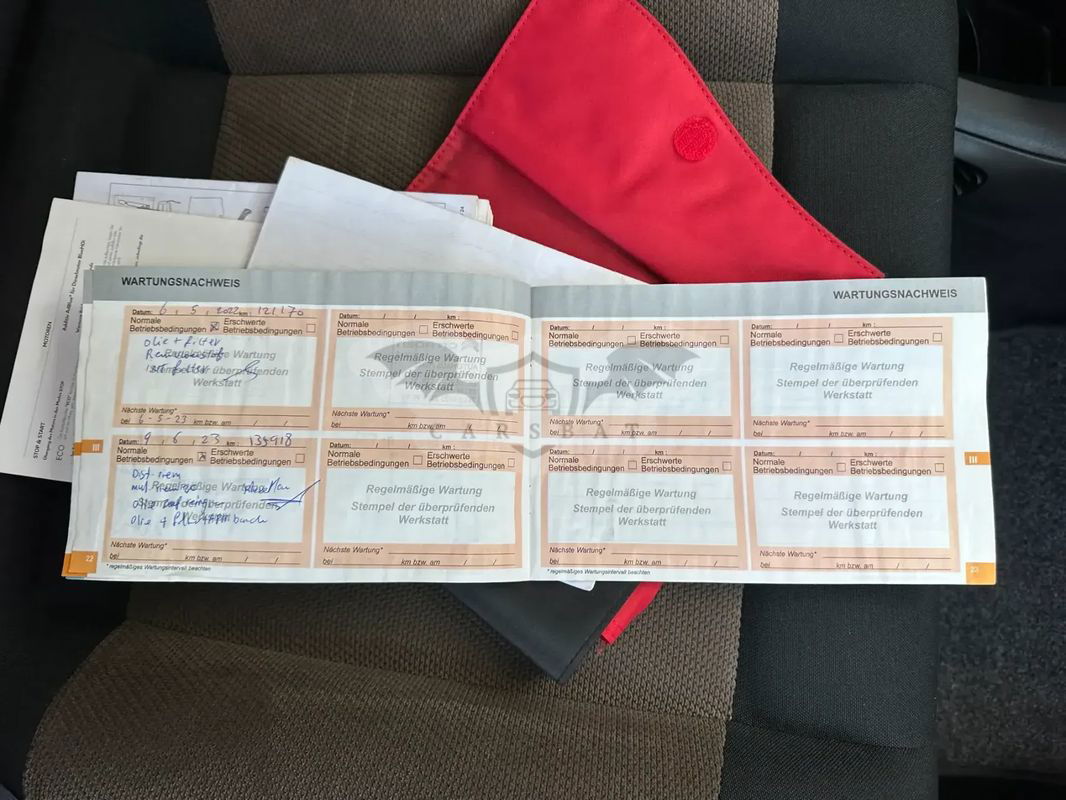 WARTUNGSNACHWEIS
WARTUNGSNACHWEIS
Datum: 6 , 5 , 2022 km : 121170
Normale Betriebsbedingungen ☒ Erschwerte Betriebsbedingungen ☐
olie + filter
Regelmäßige Wartung
Stempel der überprüfenden
Werkstatt
Nächste Wartung*
bei 6-5-23 km bzw. am / /
Datum: / / km :
Normale Betriebsbedingungen ☐ Erschwerte Betriebsbedingungen ☐
Regelmäßige Wartung
Stempel der überprüfenden
Werkstatt
Nächste Wartung*
bei km bzw. am / /
Datum: / / km :
Normale Betriebsbedingungen ☐ Erschwerte Betriebsbedingungen ☐
Regelmäßige Wartung
Stempel der überprüfenden
Werkstatt
Nächste Wartung*
bei km bzw. am / /
Datum: / / km :
Normale Betriebsbedingungen ☐ Erschwerte Betriebsbedingungen ☐
Regelmäßige Wartung
Stempel der überprüfenden
Werkstatt
Nächste Wartung*
bei km bzw. am / /
CARSBAT
Datum: 9 , 6 , 23 km : 135918
Normale Betriebsbedingungen ☒ Erschwerte Betriebsbedingungen ☐
Regelmäßige Wartung
Stempel der überprüfenden
Werkstatt
Nächste Wartung*
bei km bzw. am / /
Datum: / / km :
Normale Betriebsbedingungen ☐ Erschwerte Betriebsbedingungen ☐
Regelmäßige Wartung
Stempel der überprüfenden
Werkstatt
Nächste Wartung*
bei km bzw. am / /
Datum: / / km :
Normale Betriebsbedingungen ☐ Erschwerte Betriebsbedingungen ☐
Regelmäßige Wartung
Stempel der überprüfenden
Werkstatt
Nächste Wartung*
bei km bzw. am / /
Datum: / / km :
Normale Betriebsbedingungen ☐ Erschwerte Betriebsbedingungen ☐
Regelmäßige Wartung
Stempel der überprüfenden
Werkstatt
Nächste Wartung*
bei km bzw. am / /
* regelmäßiges Wartungsintervall beachten
* regelmäßiges Wartungsintervall beachten
III
III
22
23
MOTOREN
STOP & START
ECO